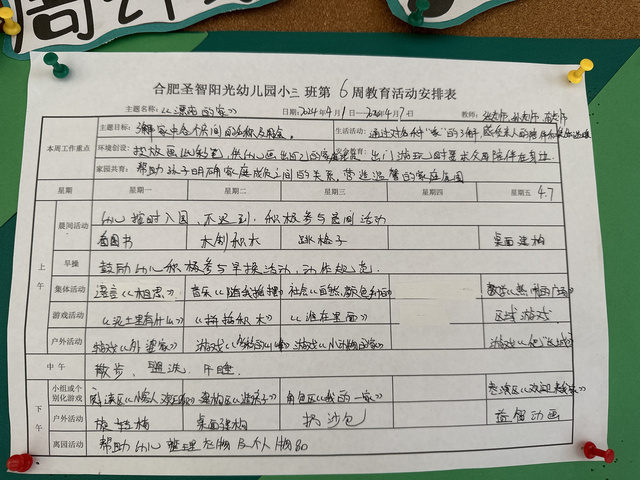 合肥圣智阳光幼儿园小三班第6周教育活动安排表
主题名称:《漂亮的家》 日期:2024年4月1—2024年4月7日 教师:
本周工作重点 主题目标: 了解家中各个房间的名称及 生活活动: 通过对各种"家"的了解,感受家人的陪伴
环境创设: 投放画纸彩笔,供幼儿画出自己的家庭成员 安全教育: 出门游玩时要求父母陪伴在身边.
家园共育: 帮助孩子明确家庭成员之间的关系,营造温馨的家庭氛围
星期 星期一 星期二 星期三 星期四 星期五 4.7
上午 晨间活动 幼儿按时入园,不迟到,积极参与晨间活动
看图书 木制积木 跳格子 桌面建构
早操 鼓励幼儿积极参与早操活动,动作规范.
集体活动 语言《相思》 音乐 社会 数学
游戏活动 《泥土里有什么》 《拼拼积木》 《谁在里面》 区域游戏.
户外活动 游戏《外婆家》 游戏 游戏《小动物的家》 游戏
中午 散步、盥洗、午睡.
下午 小组或个别化游戏 阅读区 建构区 角色区《我的一家》 表演区
户外活动 旋转梅 桌面建构 扔沙包 益智动画
离园活动 帮助幼儿整理衣物及个人物品